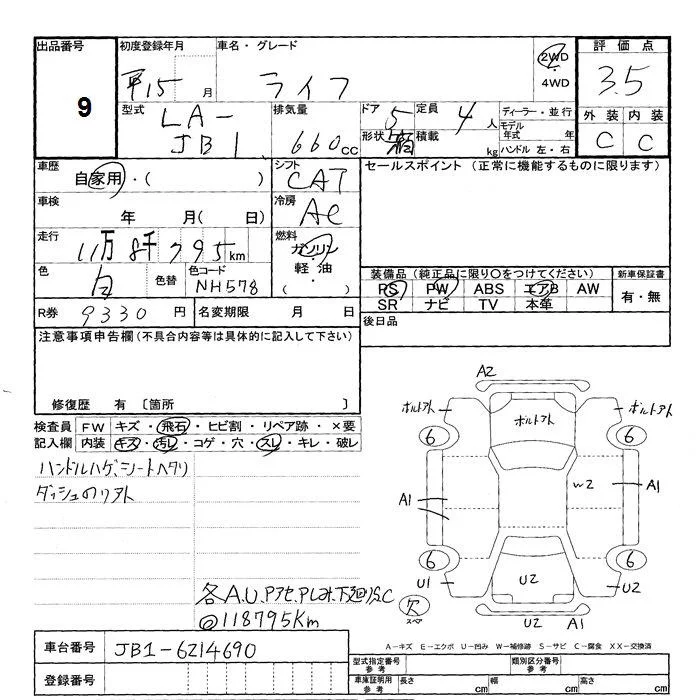 出品番号
9
初度登録年月
平15 月
車名・グレード
ライフ
2WD
4WD
評価点
3.5
外装 内装
C C
型式
LA-
JB1
排気量
660cc
ドア 5
形状 箱
定員 4人
積載 kg
ディーラー・並行
モデル年式 年
ハンドル 左・右
車歴
自家用・( )
シフト
CAT
セールスポイント (正常に機能するものに限ります)
車検
年 月( 日)
冷房
AC
走行
11万8千795km
燃料
ガソリン
軽油
( )
色
白
色替
色コード
NH578
装備品 (純正品に限り○をつけてください)
PS PW ABS エアB AW
SR ナビ TV 本革
新車保証書
有・無
R券 9330円
名変期限 月 日
後日品
注意事項申告欄 (不具合内容等は具体的に記入して下さい)
修復歴 有 〔箇所 〕
検査員
記入欄
FW キズ・飛石・ヒビ割・リペア跡・×要
内装 キズ・汚レ・コゲ・穴・スレ・キレ・破レ
ハンドルハゲ、シートヘタリ
ダッシュのリアト
各A.U.
下廻
C
@118795Km
A2
ボルトアト
ボルトアト
ボルトアト
6
6
A1
W2
A1
6
6
U1
U2
U2
欠
スペア
U2
A1
A-キズ E-エクボ U-凹み W-補修跡 S-サビ C-腐食 XX-交換済
車台番号
JB1-6214690
登録番号
型式指定番号
参考
類別区分番号
参考
車庫証明用
参考
長さ cm
幅 cm
高さ cm